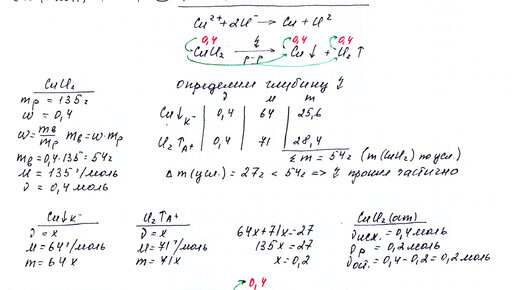 Cu²⁺ + 2Cl⁻ → Cu + Cl²
0,4 0,4 0,4
CuCl₂ → Cu↓ + Cl₂↑
р-р
Определим глубину
CuCl₂
mр = 135г
ω = 0,4
ω = mв/mр mв = ω·mр
mв = 0,4·135 = 54г
M = 135 г/моль
ν = 0,4 моль
ν M m
Cu↓K⁻ 0,4 64 25,6
Cl₂↑A⁺ 0,4 71 28,4
Σm = 54г (m(CuCl₂) по усл.)
Δm(усл.) = 27г < 54г => прошёл частично
Cu↓K⁻
ν = x
M = 64 г/моль
m = 64x
Cl₂↑A⁺
ν = x
M = 71 г/моль
m = 71x
64x + 71x = 27
135x = 27
x = 0,2
CuCl₂(ост)
νисх. = 0,4 моль
νр = 0,2 моль
νост. = 0,4 - 0,2 = 0,2 моль
0,4